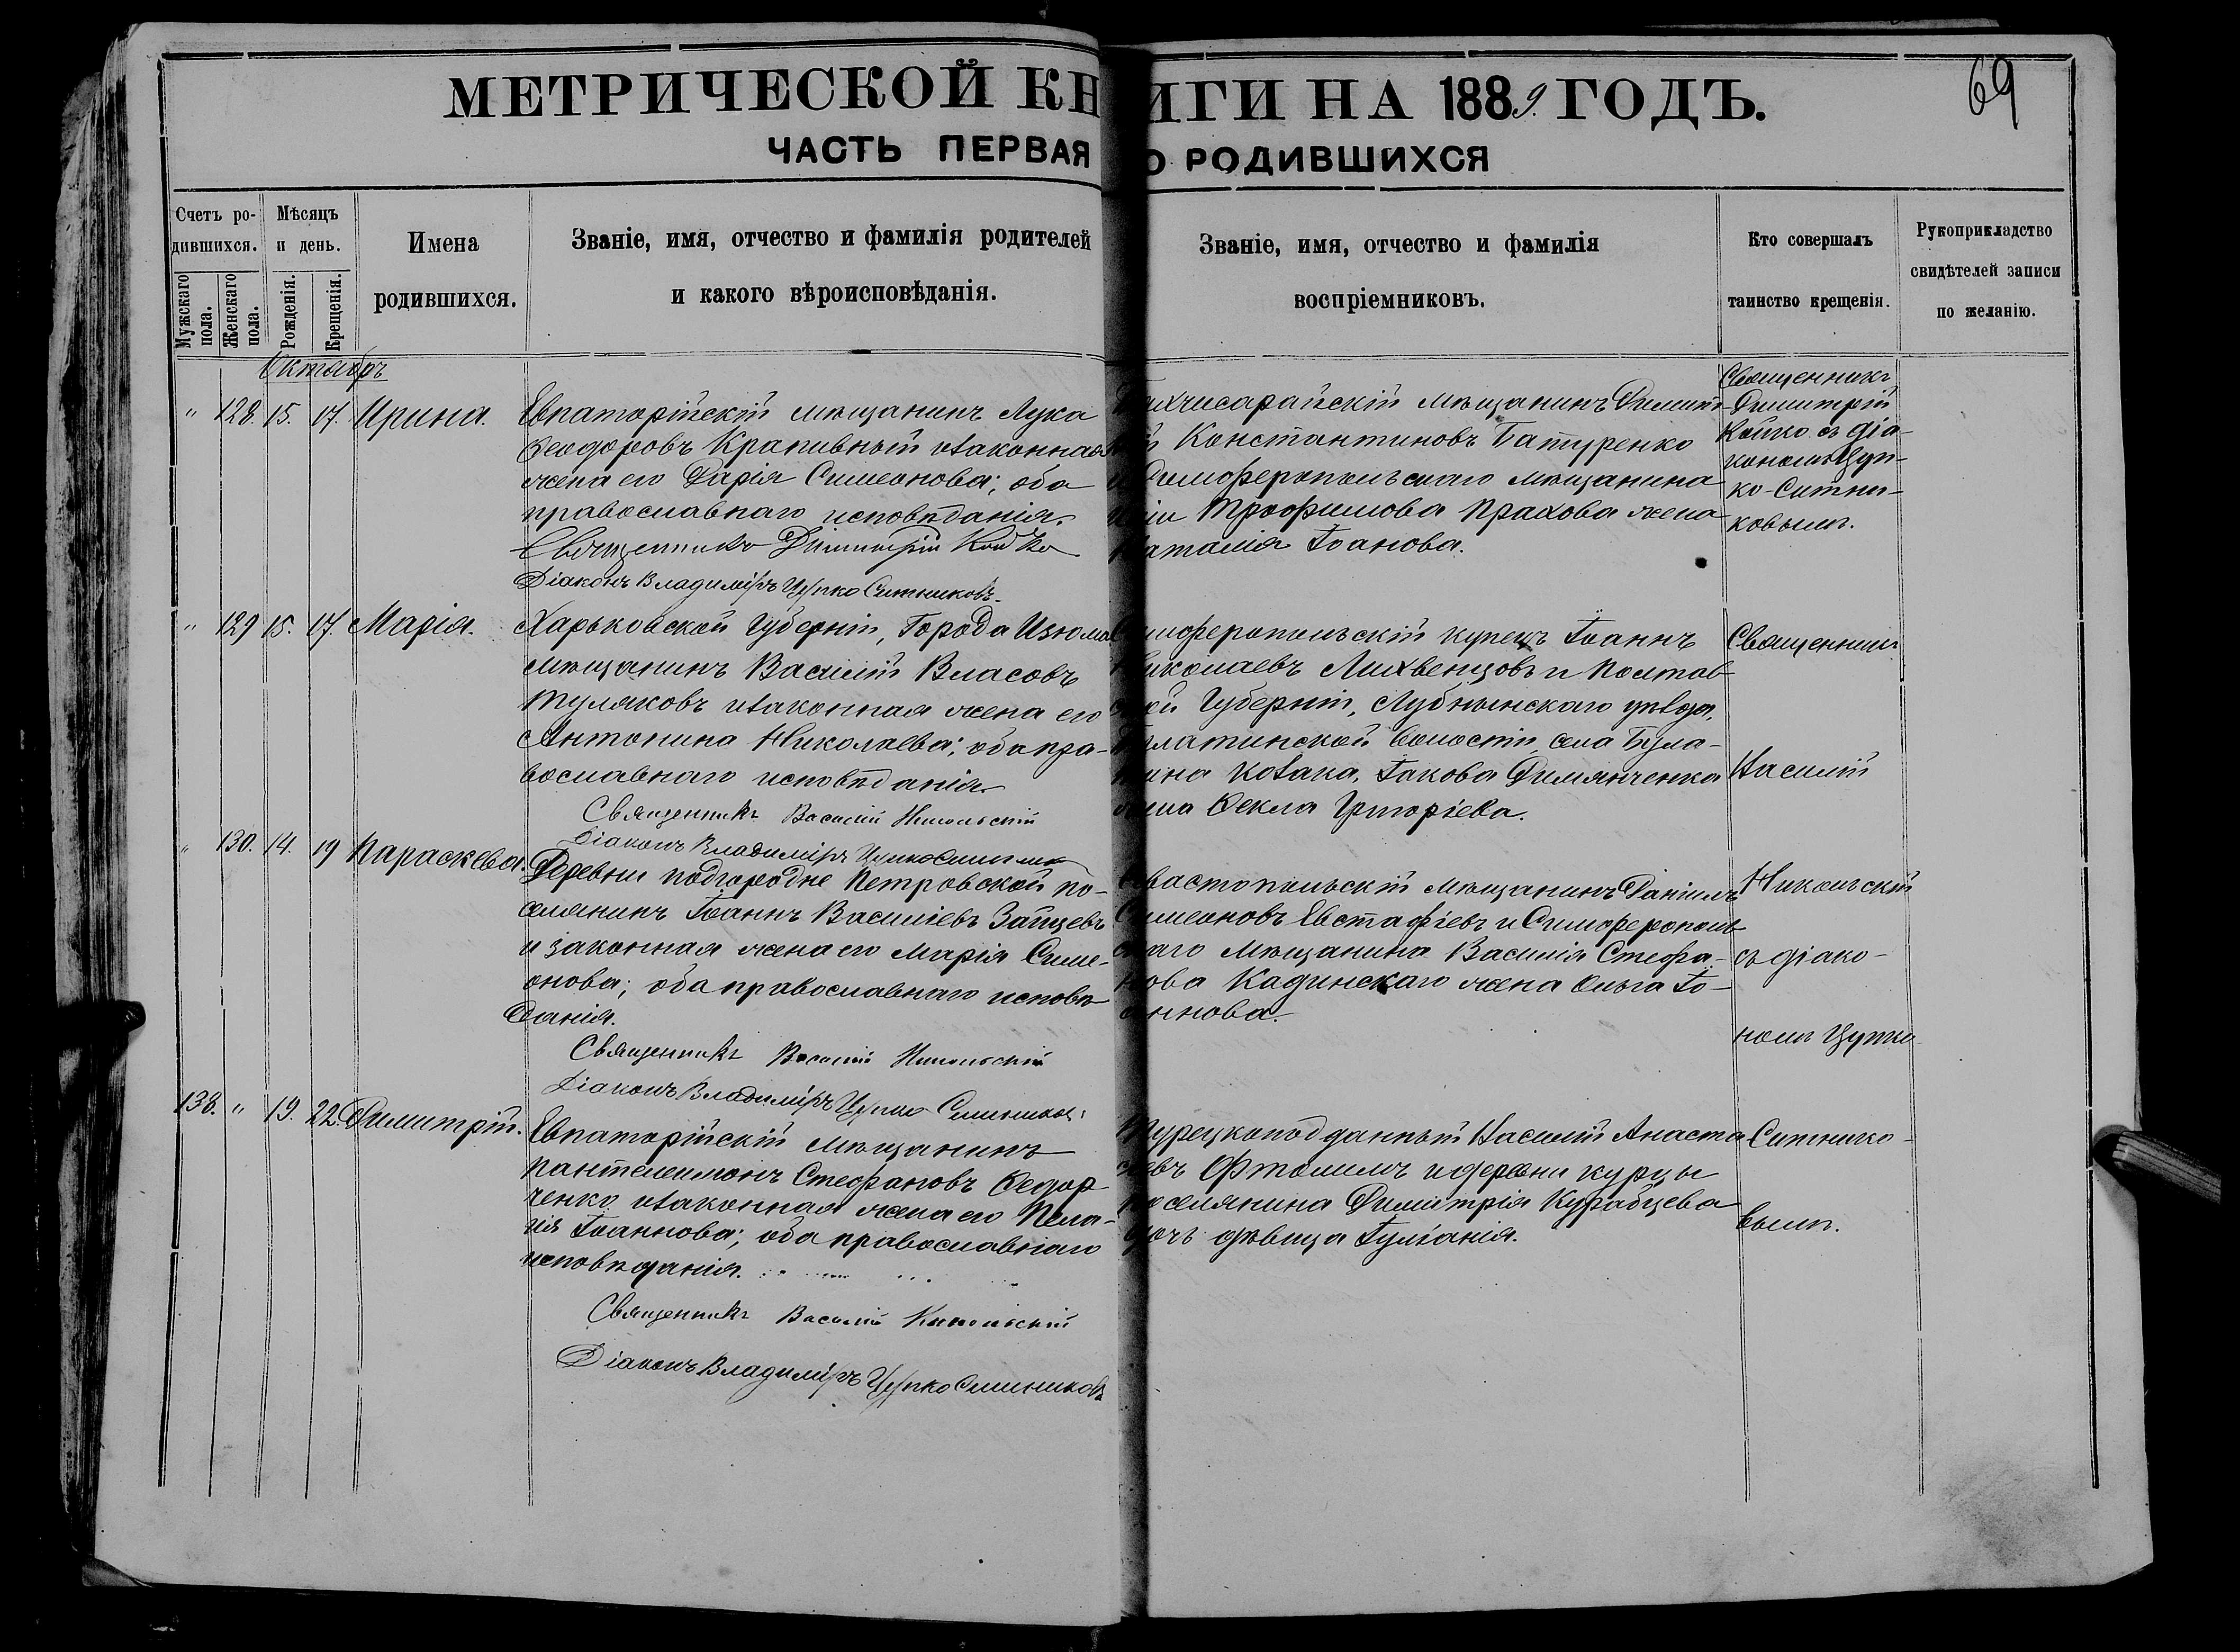 МЕТРИЧЕСКОЙ КНИГИ НА 1889. ГОДЪ.
69
ЧАСТЬ ПЕРВАЯ О РОДИВШИХСЯ
Счетъ ро-
дившихся.
Мужскаго
пола.
Женскаго
пола.
Мѣсяцъ
и день.
Рожденія.
Крещенія.
Имена
родившихся.
Званіе, имя, отчество и фамилія родителей
и какого вѣроисповѣданія.
Званіе, имя, отчество и фамилія
воспріемниковъ.
Кто совершалъ
таинство крещенія.
Рукоприкладство
свидѣтелей записи
по желанію.
Октябрь
" 128. 15. 17. Ирина.
Евпаторійскій мѣщанинъ Лука
Ѳеодоровъ Крапивный и законная
жена его Дарія Симеонова; оба
православнаго исповѣданія.
Священникъ Димитрій Койко
Діаконъ Владиміръ Цупко Ситниковъ.
Бахчисарайскій мѣщанинъ Димит-
рій Константиновъ Батуренко
и Симферопольскаго мѣщанина
Трофимова Прахова жена
Наталія Іоанова.
Священникъ
Димитрій
Койко съ діа-
кономъ Цуп-
ко-Ситни-
ковымъ.
" 129 15. 17. Марія.
Харьковской Губерніи, Города Изюма
мѣщанинъ Василій Власовъ
Туляковъ и законная жена его
Антонина Николаева; оба пра-
вославнаго исповѣданія.
Священникъ Василій Никольскій
Діаконъ Владиміръ Цупко Ситник
Симферопольскій купецъ Іоаннъ
Николаевъ Лихвенцовъ и Полтав-
ской Губерніи, Лубнынскаго уѣзда,
Булатинской волости, села Була-
тина козака, Іакова Димянченка
жена Ѳекла Григоріева.
Священникъ
Василій
Никольскій
съ діако-
номъ Цупко-
Ситнико-
вымъ.
" 130. 14. 19 Параскева.
Деревни Подгородне Петровской по-
селянинъ Іоаннъ Василіевъ Зайцевъ
и законная жена его Марія Симе-
онова; оба православнаго исповѣ-
данія.
Священникъ Василій Никольскій
Діаконъ Владиміръ Цупко Ситниковъ
Севастопольскій мѣщанинъ Даніилъ
Симеоновъ Евстафіевъ и Симферополь-
скаго мѣщанина Василія Стефа-
нова Кадинскаго жена Ольга Іо-
аннова.
138. " 19. 22. Димитрій.
Евпаторійскій мѣщанинъ
Пантелеимонъ Стефановъ Ѳедор-
ченко и законная жена его Пела-
гія Іоаннова; оба православнаго
исповѣданія.
Священникъ Василій Никольскій
Діаконъ Владиміръ Цупко Ситниковъ
Турецкоподданный Василій Анаста-
сіевъ и деревни Курцы
поселянина Димитрія Курабцева
дочь дѣвица Іуліанія.